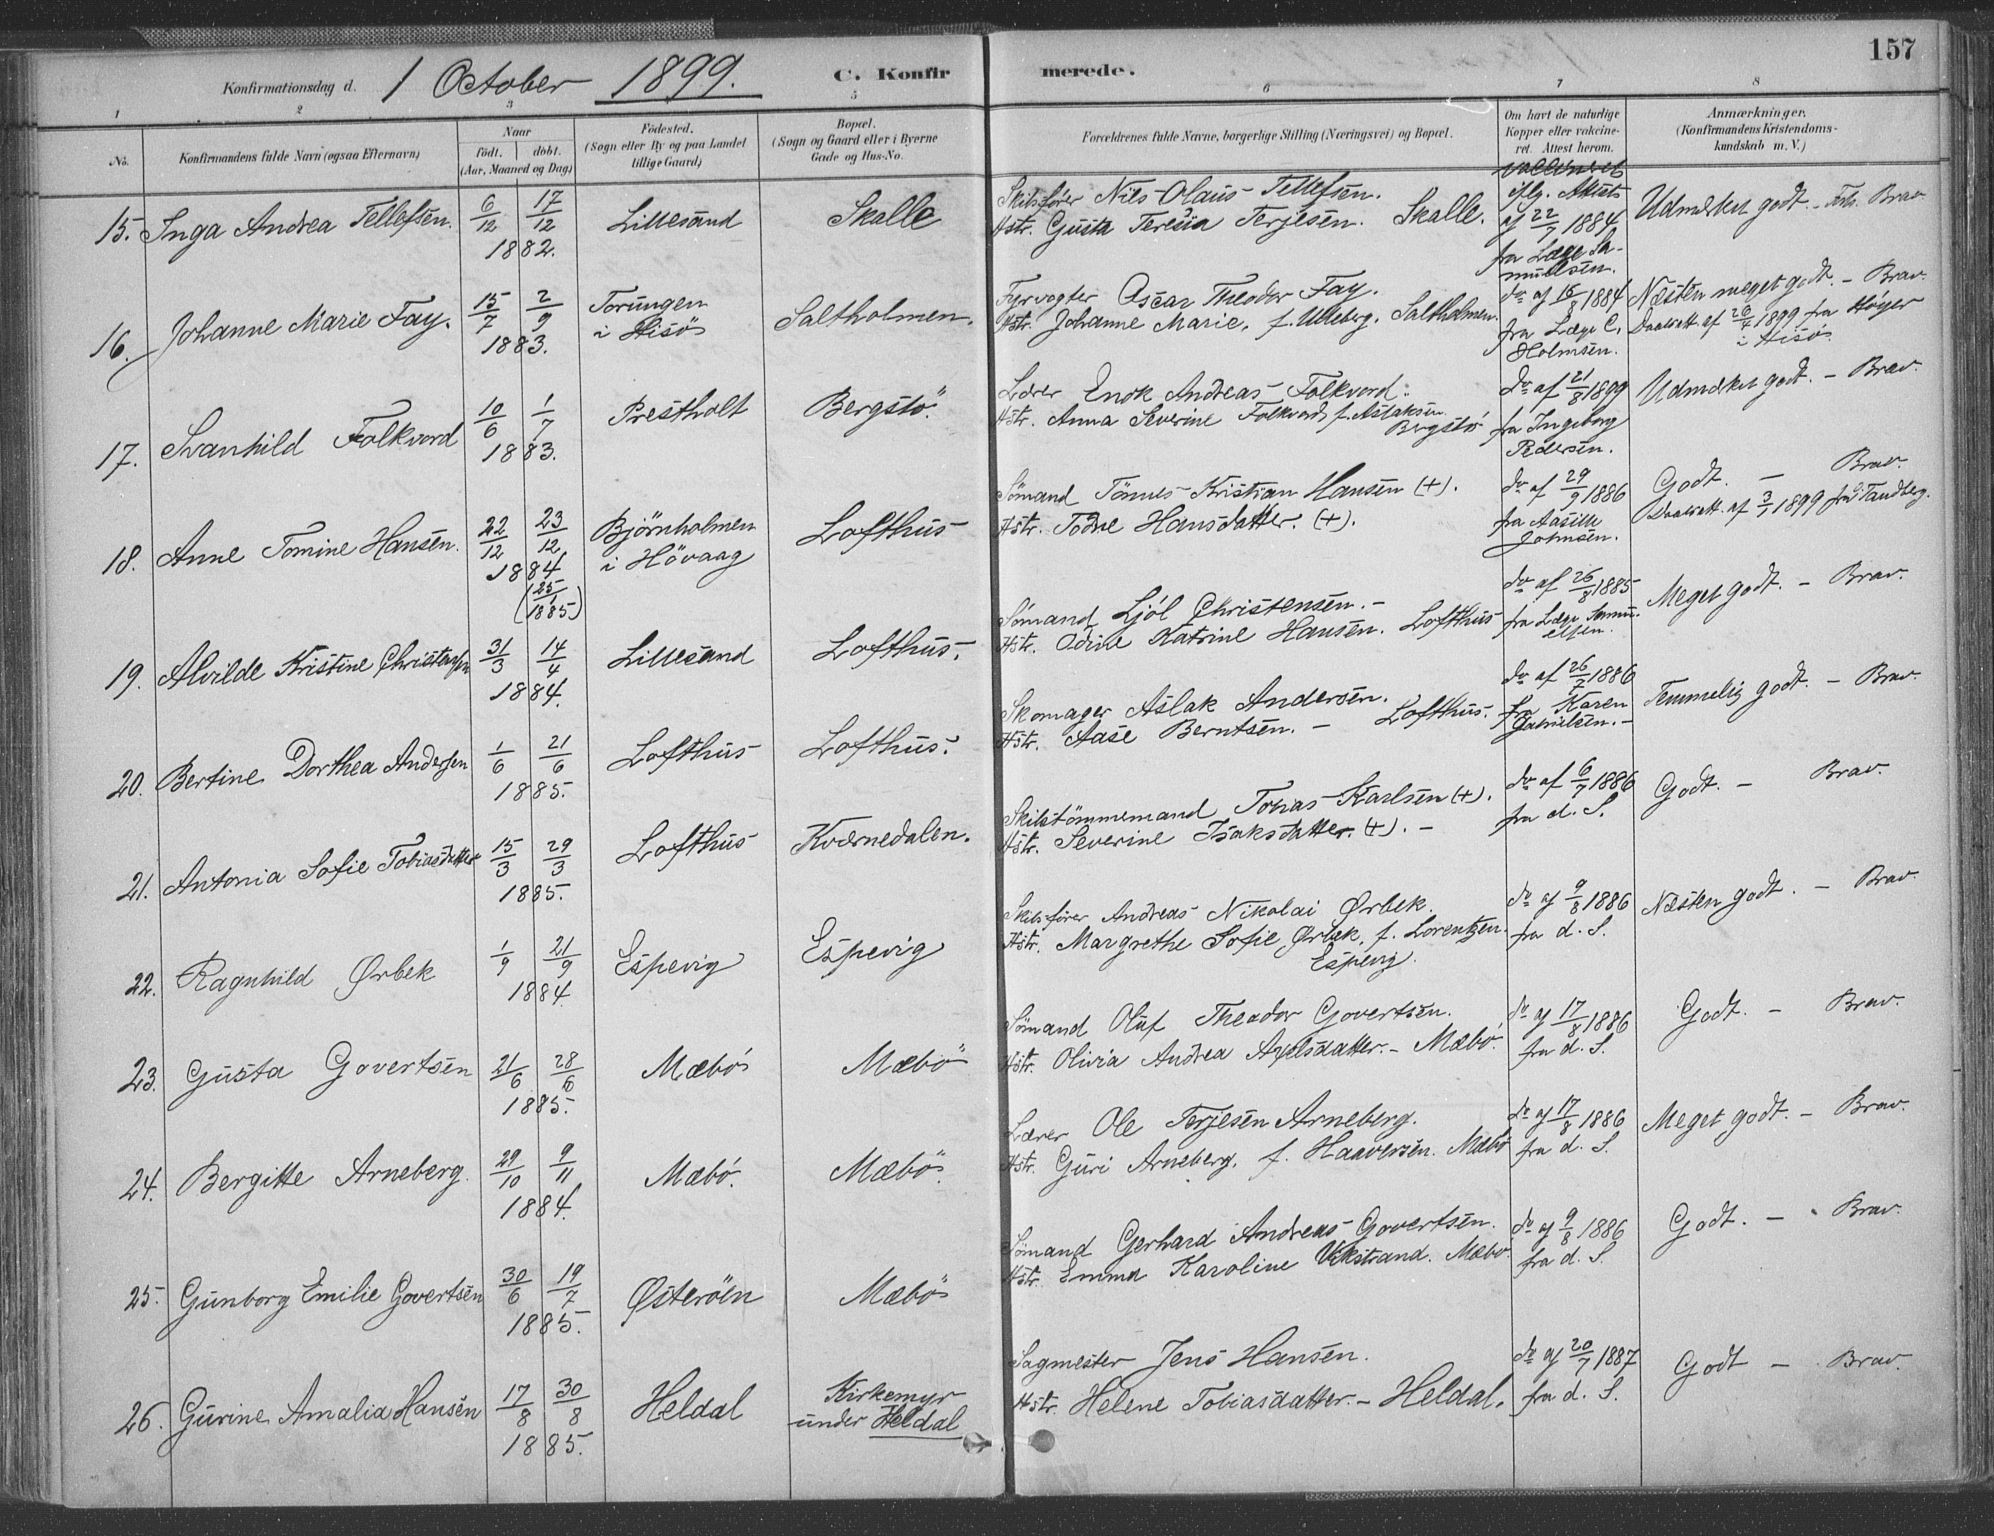 157
Konfirmationsdag d. 1 October 1899. C. Konfirmerede.
1 2 3 5 6 7 8
No. Konfirmandens fulde Navn (ogsaa Efternavn) Naar født. døbt. (Aar, Maaned og Dag) Fødested. (Sogn eller By og paa Landet tillige Gaard) Bopæl. (Sogn og Gaard eller i Byerne Gade og Hus-No. Forældrenes fulde Navne, borgerlige Stilling (Næringsvei) og Bopæl. Om havt de naturlige Kopper eller vakcineret. Attest herom. Anmærkninger. (Konfirmandens Kristendomskundskab m. V.)
15. Inga Andrea Tellefsen. 6/12 17/12 1882. Lillesand Skalle
Skibsfører Nils Olaus Tellefsen.
Hstr. Gusta Teresia Terjesen. Skalle.
iflg. Attest
af 22/7 1884
fra Læge Sa-
muelsen.
Udmærket godt. - Brav.
16. Johanne Marie Fay. 15/7 2/9 1883. Torungen
i Hisö Saltholmen.
Fyrvogter Oscar Theodor Fay.
Hstr. Johanne Marie, f. Ulleberg. Saltholmen.
do af 15/8 1884
fra Læge C.
Holmsen.
Næsten meget godt. - Brav.
Daabsatt. af 26/4 1899 fra Höyer
i Hisö.
17. Svanhild Folkvord 10/6 1/7 1883. Prestholt Bergstö.
Lærer Enok Andreas Folkvord.
Hstr. Anna Severine Folkvord, f. Aslaksen
Bergstö
do af 21/8 1899
fra Ingeborg
Pedersen.
Udmærket godt. - Brav.
18. Anne Tomine Hansen. 22/12 23/12 1884 (25/1 1885) Björnholmen
i Hövaag Lofthus
Sömand Tömes Kristian Hansen (+).
Hstr. Todne Hansdatter. (+).
do af 29/9 1886
fra Aasille
Johnsen.
Godt. - Brav.
Daabsatt. af 3/7 1899 fra Tandberg.
19. Alvilde Kristine Christensen 31/3 14/4 1884. Lillesand Lofthus.
Sömand Ljöl Christensen. -
Hstr. Odine Katrine Hansen. Lofthus
do af 26/8 1885
fra Læge Samu-
elsen.
Meget godt. - Brav.
20. Bertine Dorthea Andersen 1/6 21/6 1885. Lofthus Lofthus.
Skomager Aslak Andersen.
Hstr. Aase Berntsen. - Lofthus.
do af 26/7 1886
fra Karen
Gabrielsen. -
Temmelig godt. - Brav.
21. Antonia Sofie Tobiasdatter 15/3 29/3 1885. Lofthus Kværnedalen.
Skibstömmermand Tobias Karlsen (+).
Hstr. Severine Isaksdatter. (+). -
do af 6/7 1886
fra d. S.
Godt. - Brav.
22. Ragnhild Ørbek 1/9 21/9 1884 Espevig Espevig
Skibsfører Andreas Nikolai Ørbek.
Hstr. Margrethe Sofie Ørbek, f. Lorentzen.
Espevig.
do af 9/8 1886
fra d. S.
Næsten godt. - Brav.
23. Gusta Govertsen 21/6 28/6 1885. Mæbö Mæbö
Sömand Oluf Theodor Govertsen.
Hstr. Olivia Andrea Axelsdatter. - Mæbö.
do af 17/8 1886
fra d. S.
Godt. - Brav.
24. Bergitte Arneberg. 29/10 9/11 1884. Mæbö. Mæbö.
Lærer Ole Terjesen Arneberg.
Hstr. Guri Arneberg, f. Haaversen. Mæbö
do af 17/8 1886
fra d. S.
Meget godt. - Brav.
25. Gunborg Emilie Govertsen 30/6 19/7 1885. Østeröen Mæbö
Sömand Gerhard Andreas Govertsen.
Hstr. Emma Karoline Vikstrand. Mæbö
do af 9/8 1886
fra d. S.
Godt. - Brav.
26. Gurine Amalia Hansen 17/8 30/8 1885. Heldal Kirkemyr
under Heldal
Sagmester Jens Hansen.
Hstr. Helene Tobiasdatter. - Heldal.
do af 20/7 1887
fra d. S.
Godt - Brav.